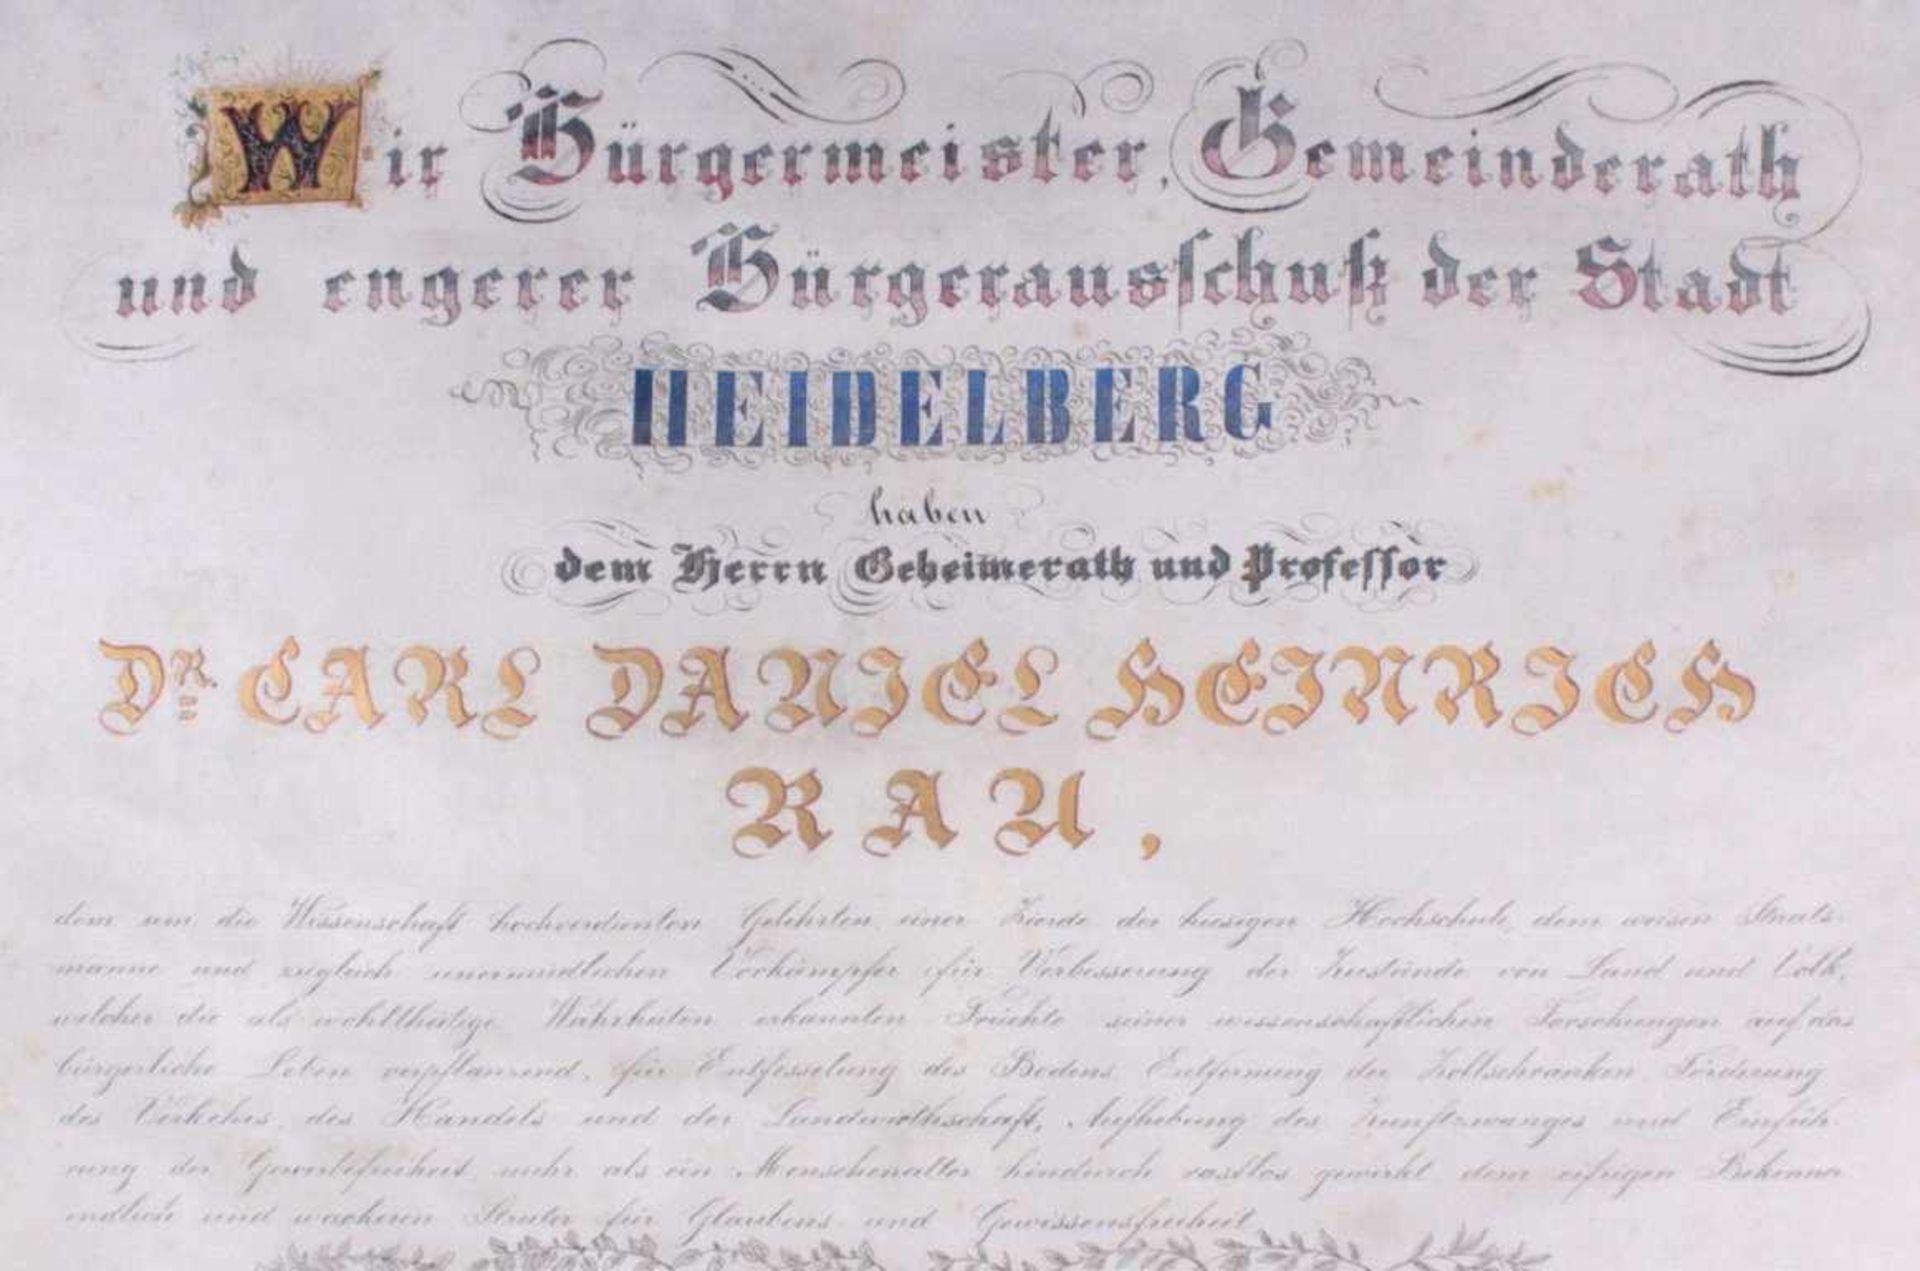 Wir Bürgermeister, Gemeinderath
und engerer Bürgerausschuß der Stadt
HEIDELBERG
haben
dem Herrn Geheimerath und Professor
DR. CARL DANIEL HEINRICH
RAU,
dem um die Wissenschaft hochverdienten Gelehrten, einer Zierde der hiesigen Hochschule, dem weisen Staats-
manne und zugleich unermüdlichen Vorkämpfer für Verbesserung der Zustände von Land und Volk,
welcher die als wohlthätige Wahrheiten erkannten Früchte seiner wissenschaftlichen Forschungen auf das
bürgerliche Leben verpflanzend, für Entfesselung des Bodens, Entfernung der Zollschranken, Förderung
des Verkehrs, des Handels und der Landwirthschaft, Aufhebung des Zunftzwanges und Einfüh-
rung der Gewerbefreiheit mehr als ein Menschenalter hindurch rastlos gewirkt, dem eifrigen Bekenner
endlich und wackeren Streiter für Glaubens- und Gewissensfreiheit